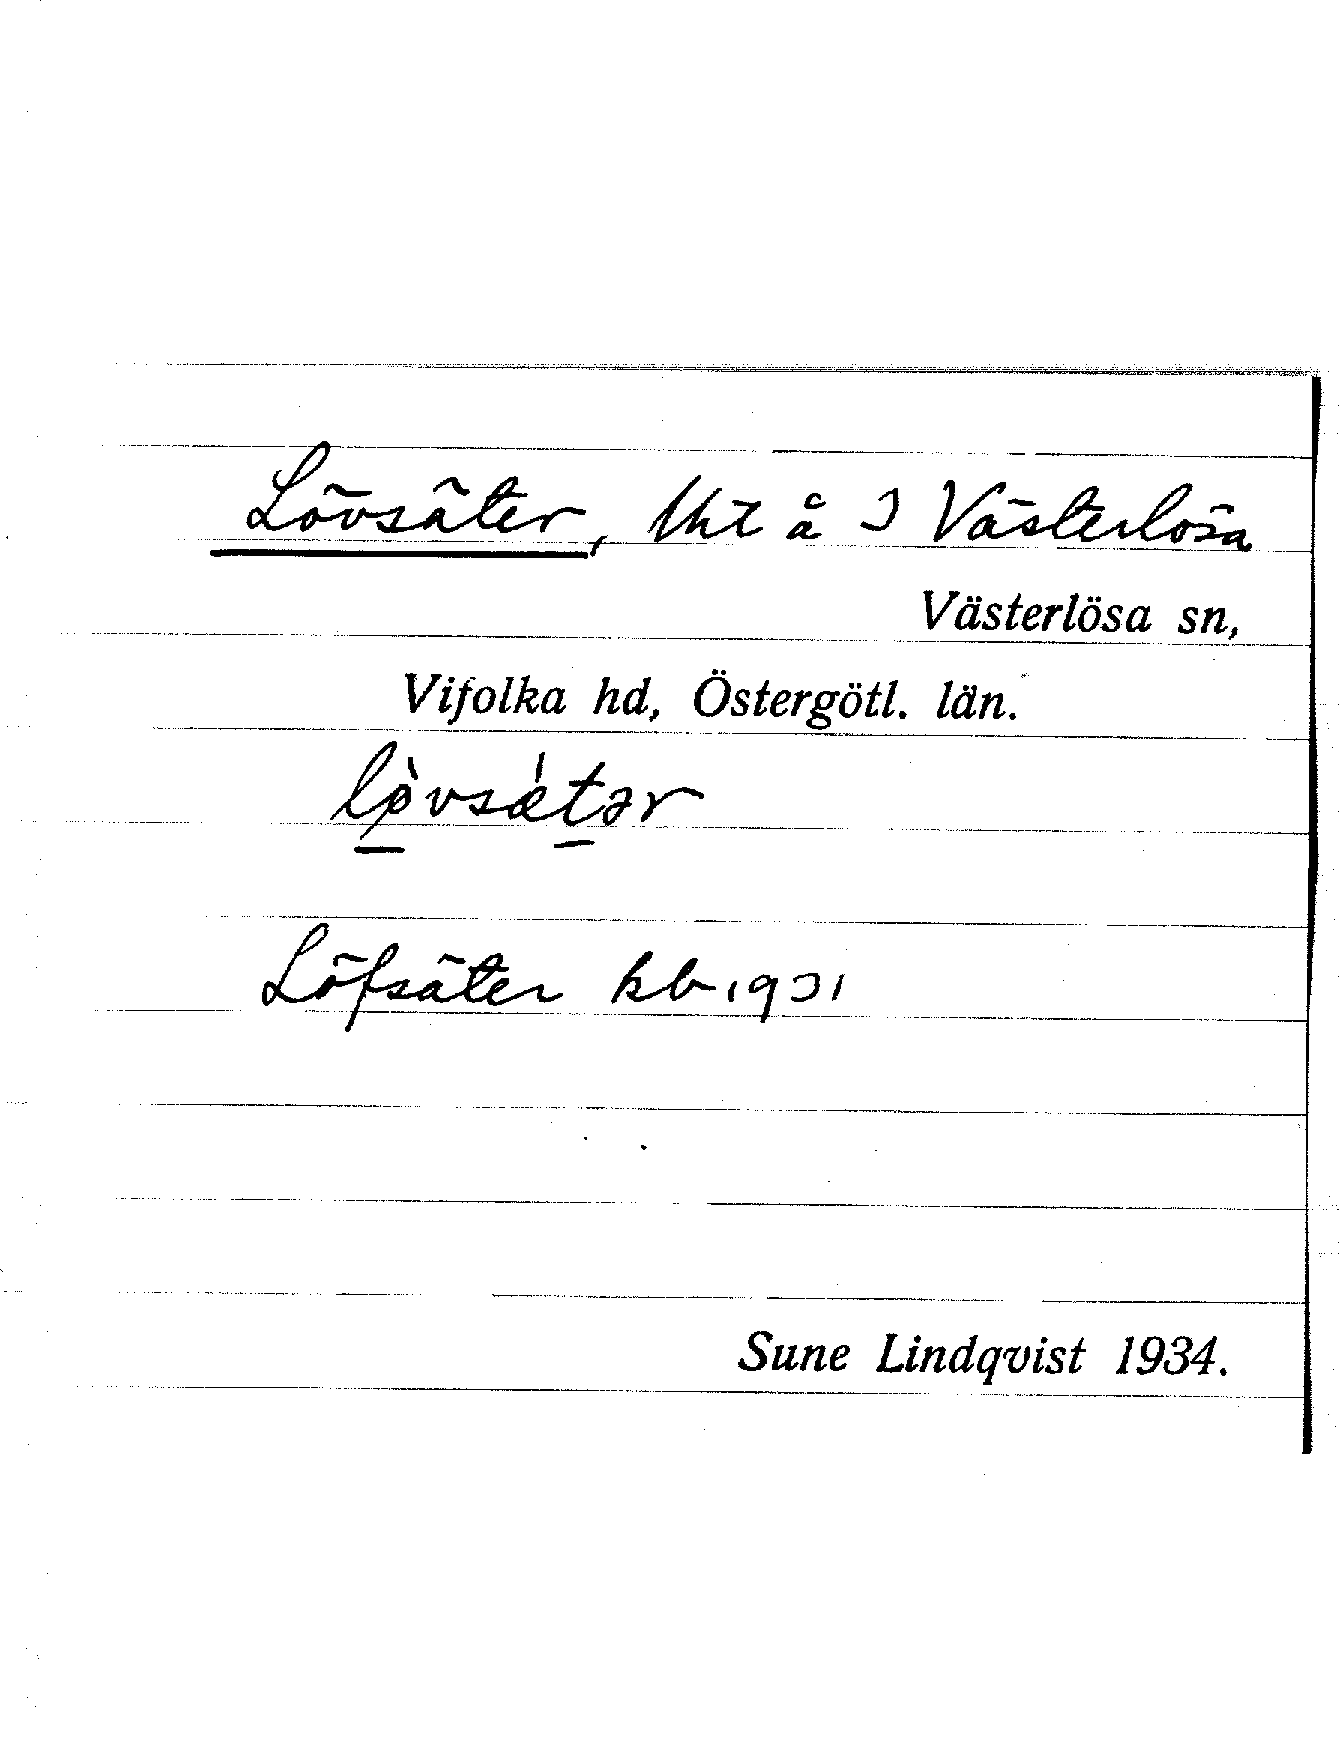 Lövsäter, lht å 3 Västerlösa
Västerlösa sn,
Vifolka hd, Östergötl. län.
lø̀vsǽtər
Löfsäter kb 1931
Sune Lindqvist 1934.